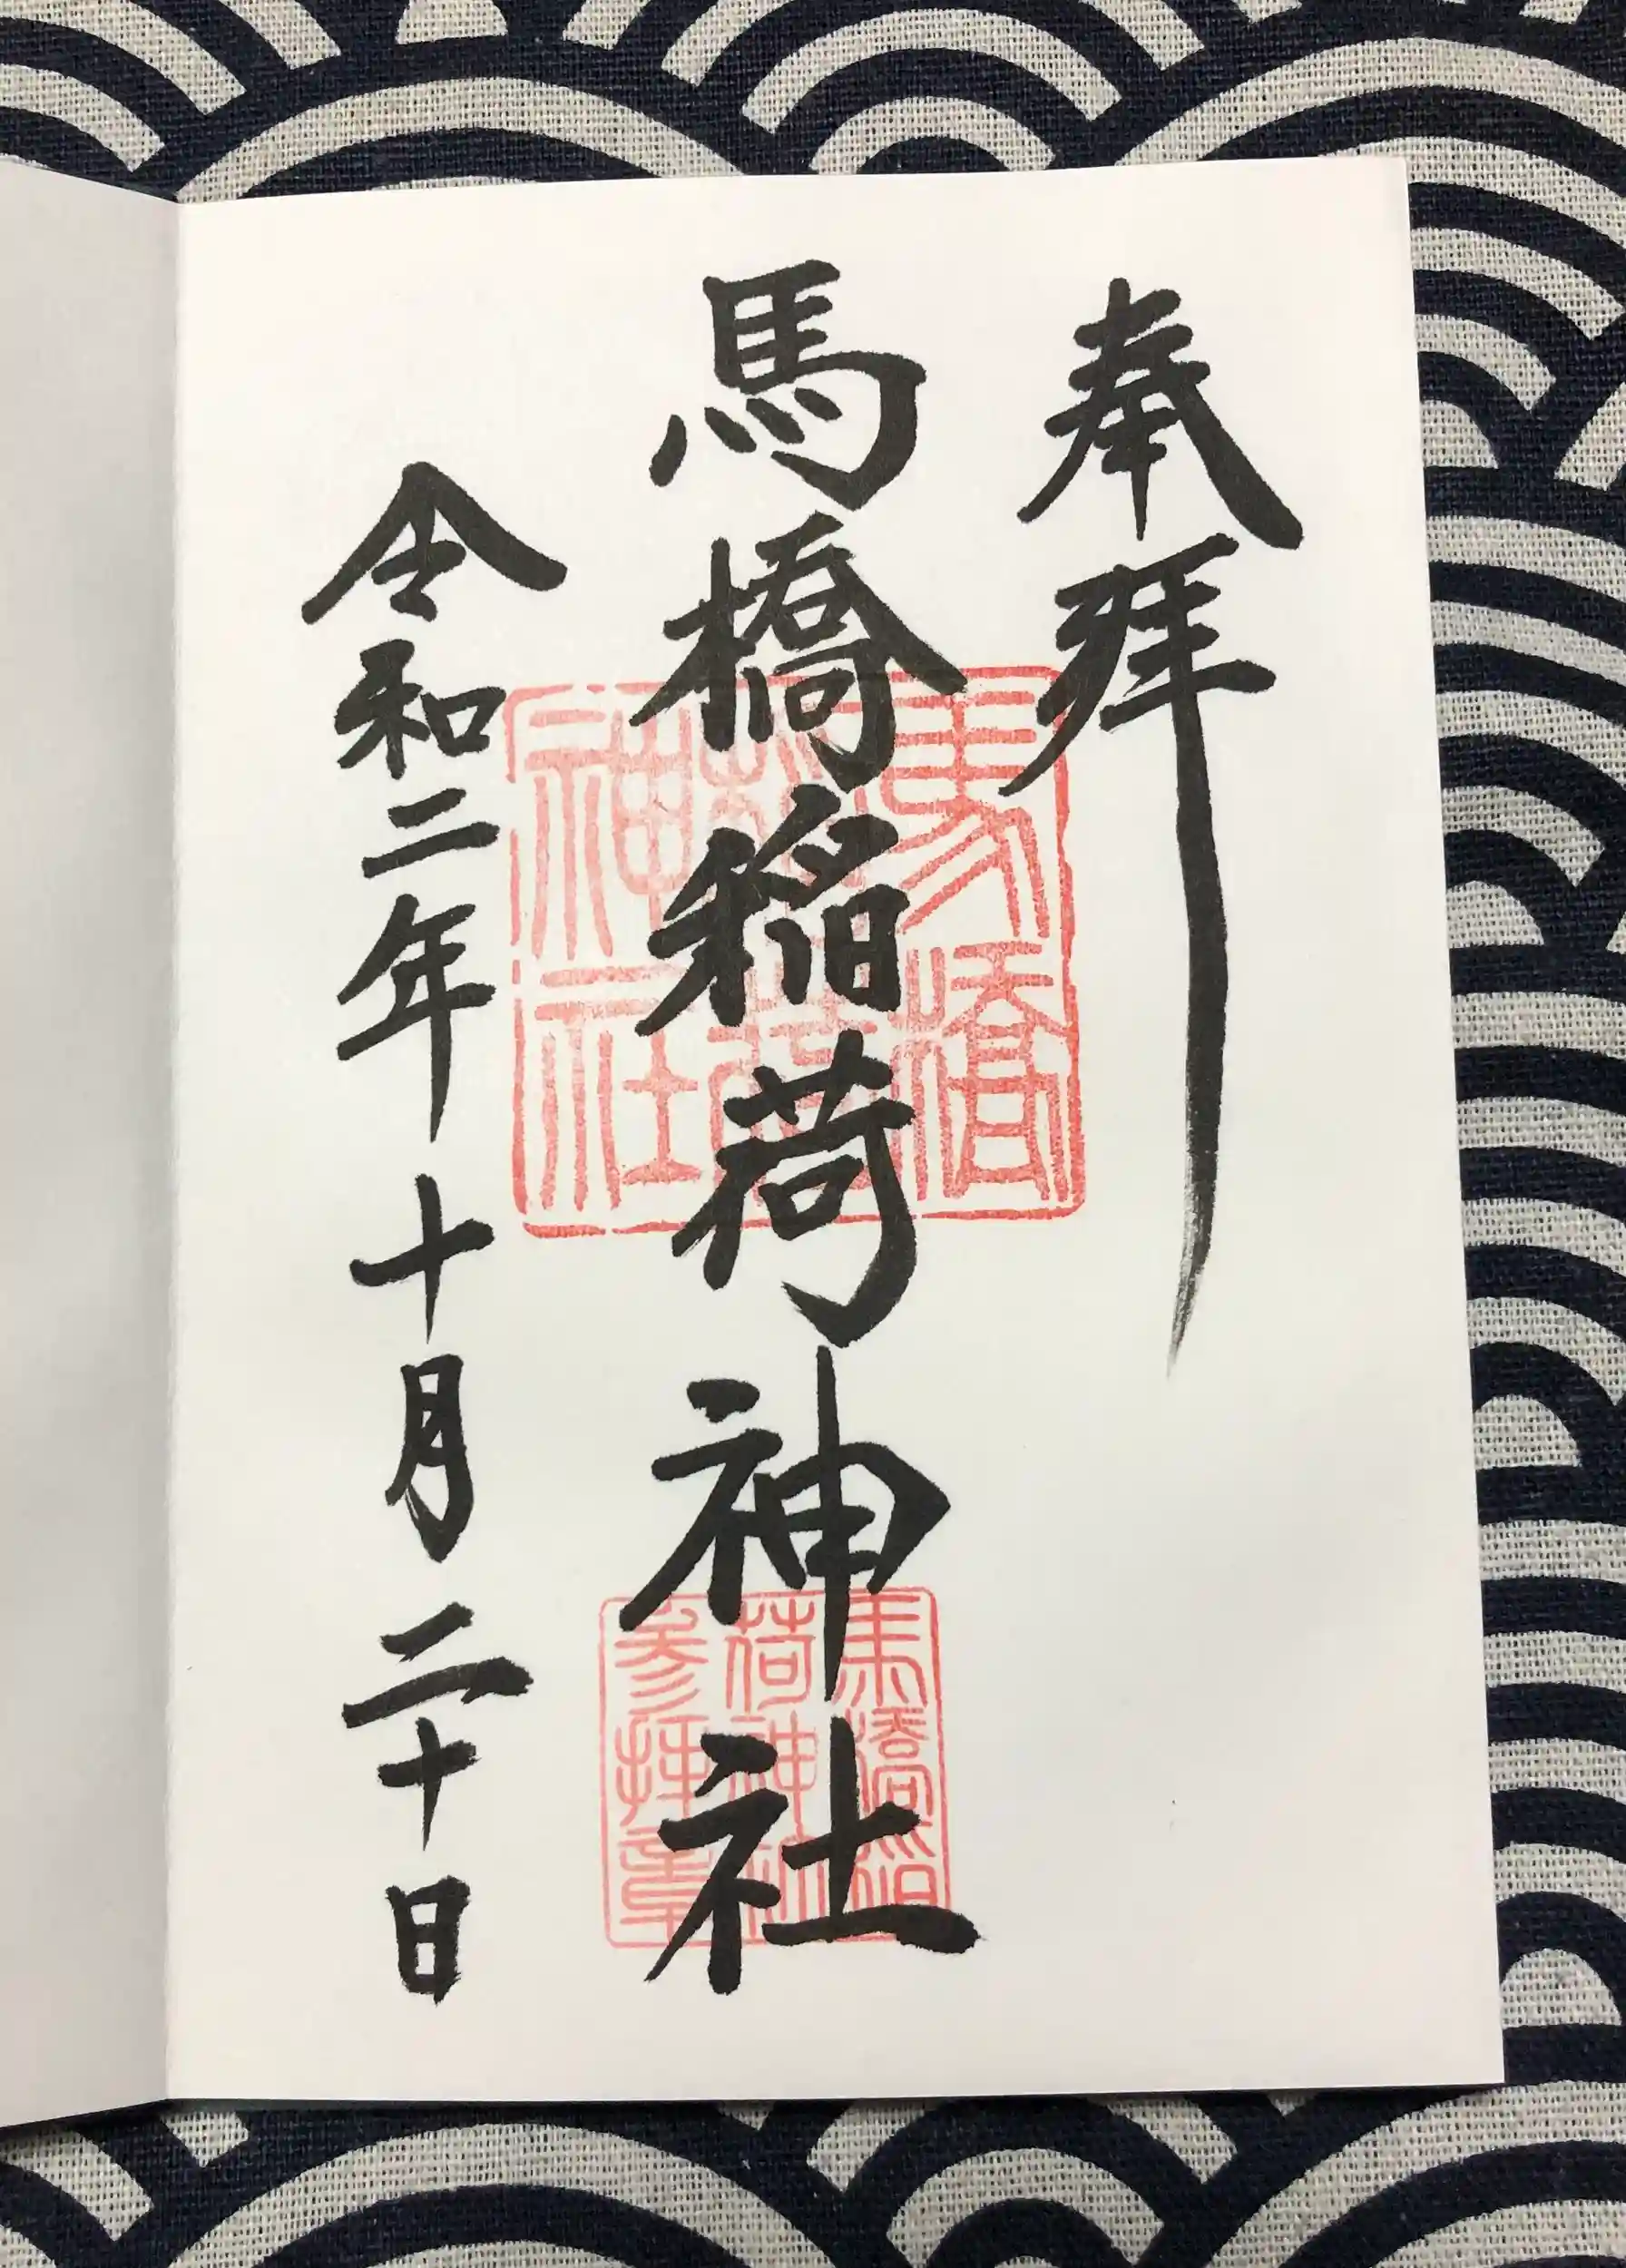 奉拝
馬橋稲荷神社
令和二年十月二十日
馬橋
稲荷
神社
馬橋稲
荷神社
参拝章